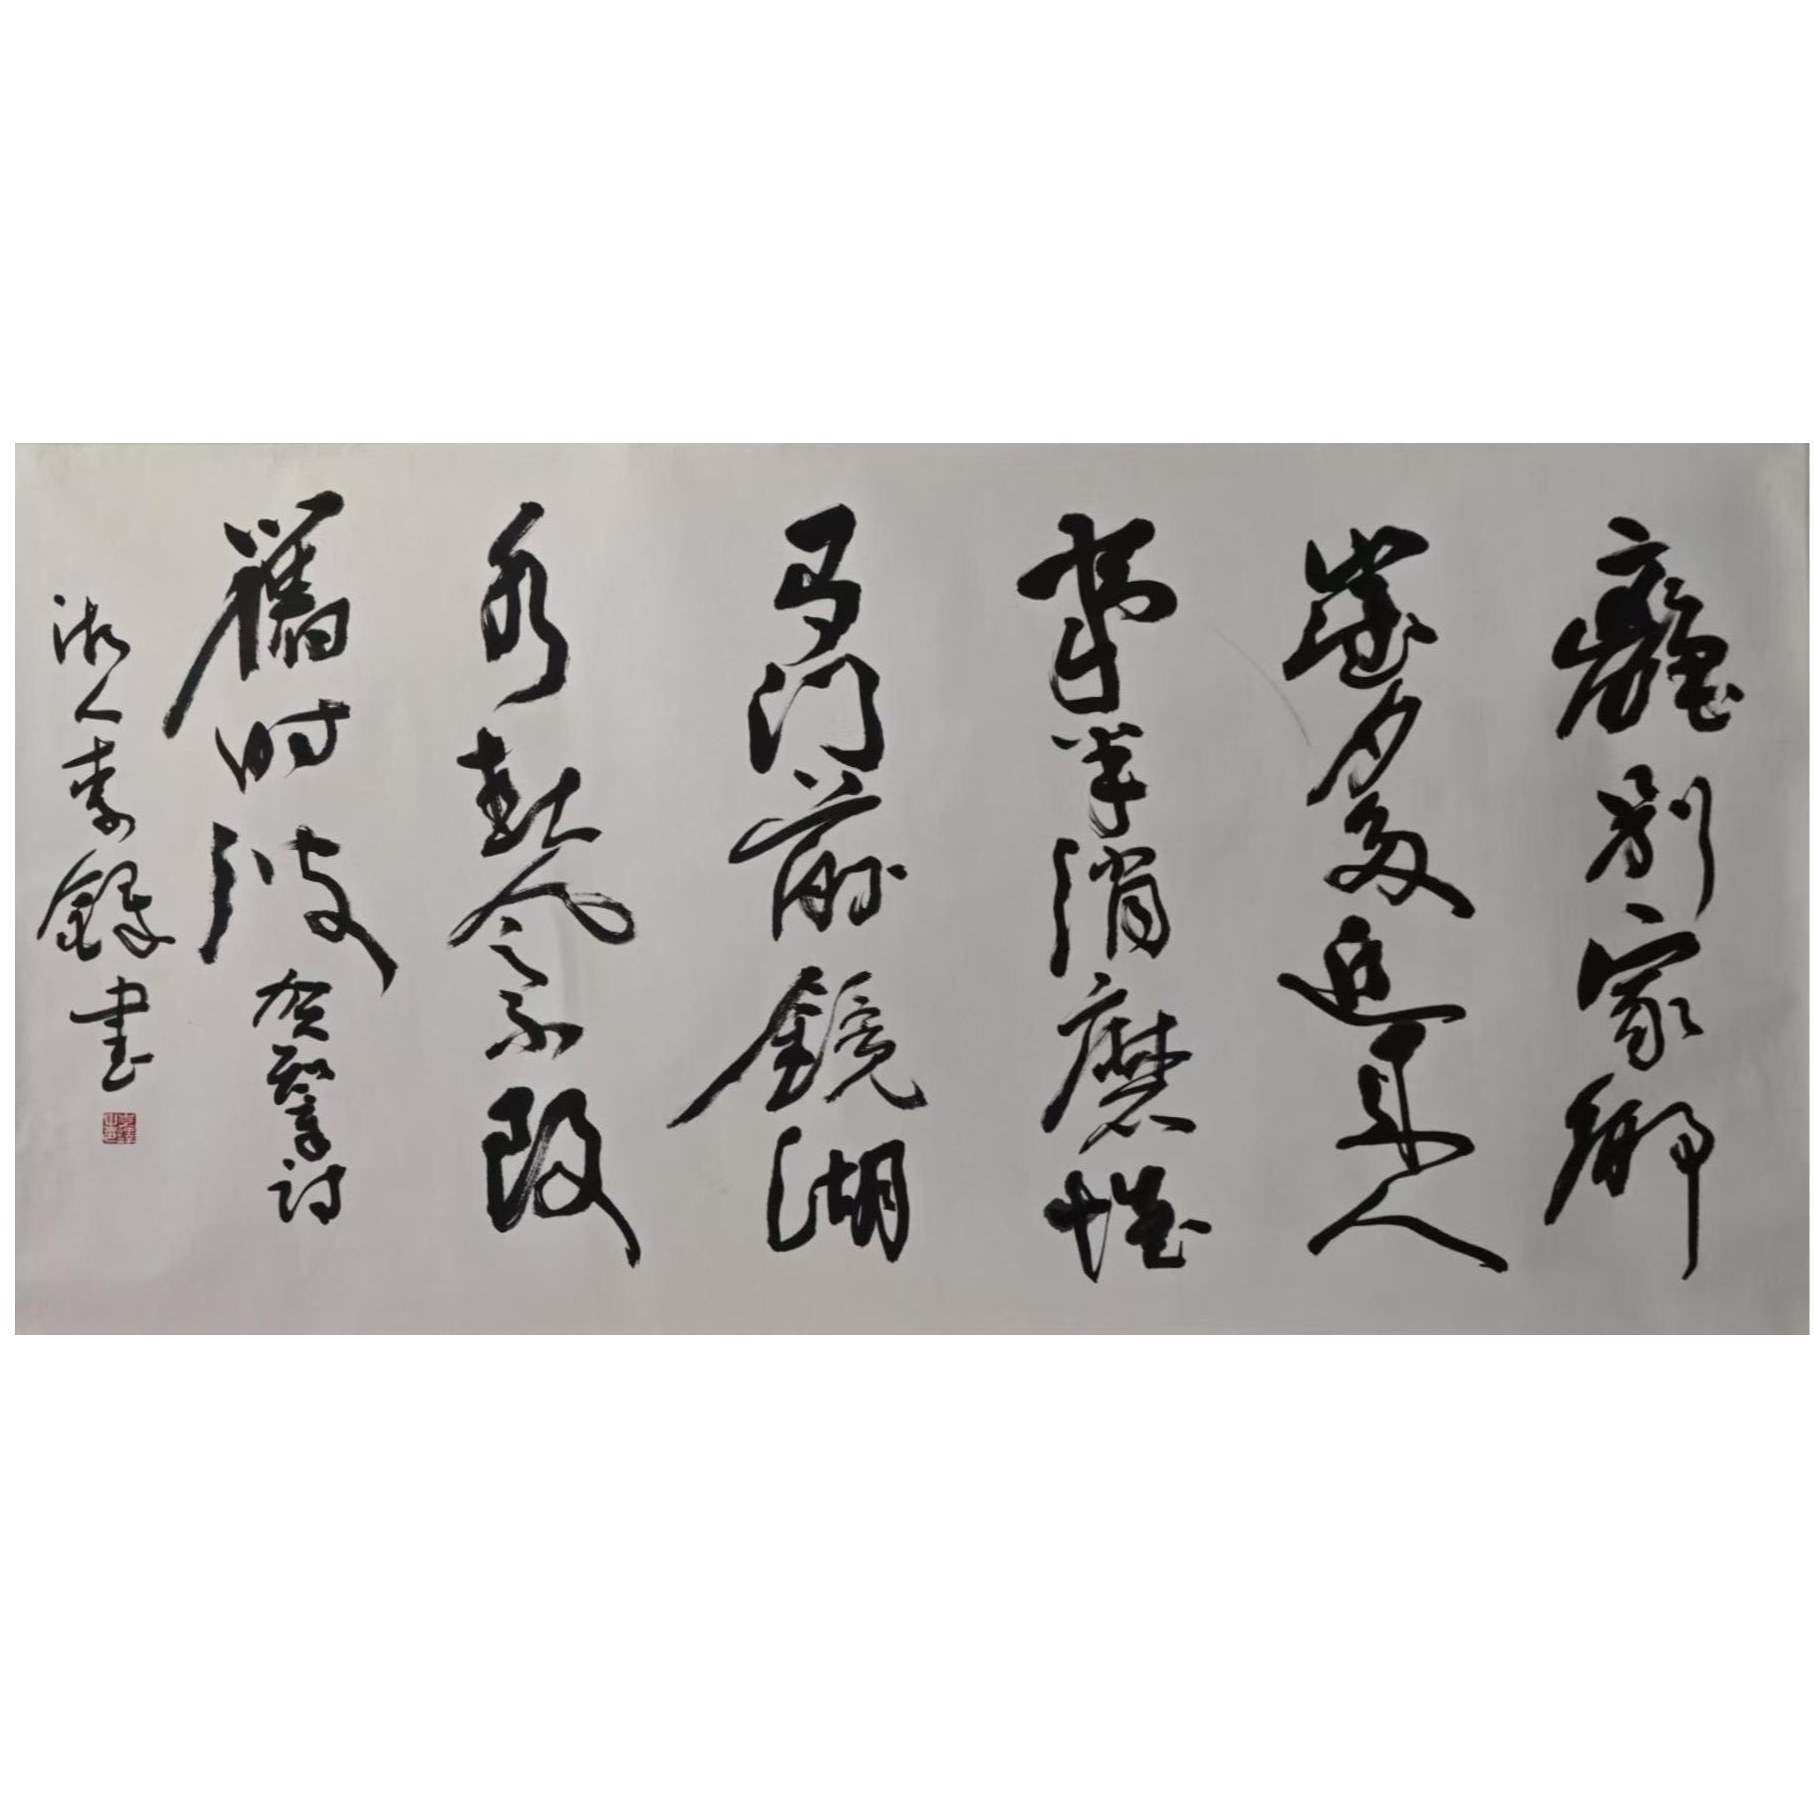 離別家鄉
歲月多近來人
事半消磨惟
有门前鏡湖
水春風不改
舊时波 賀知章诗
湘人李鐸書